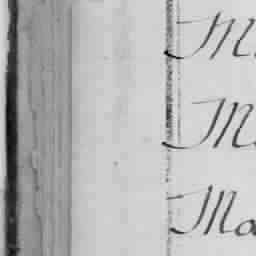 M
M
Ma